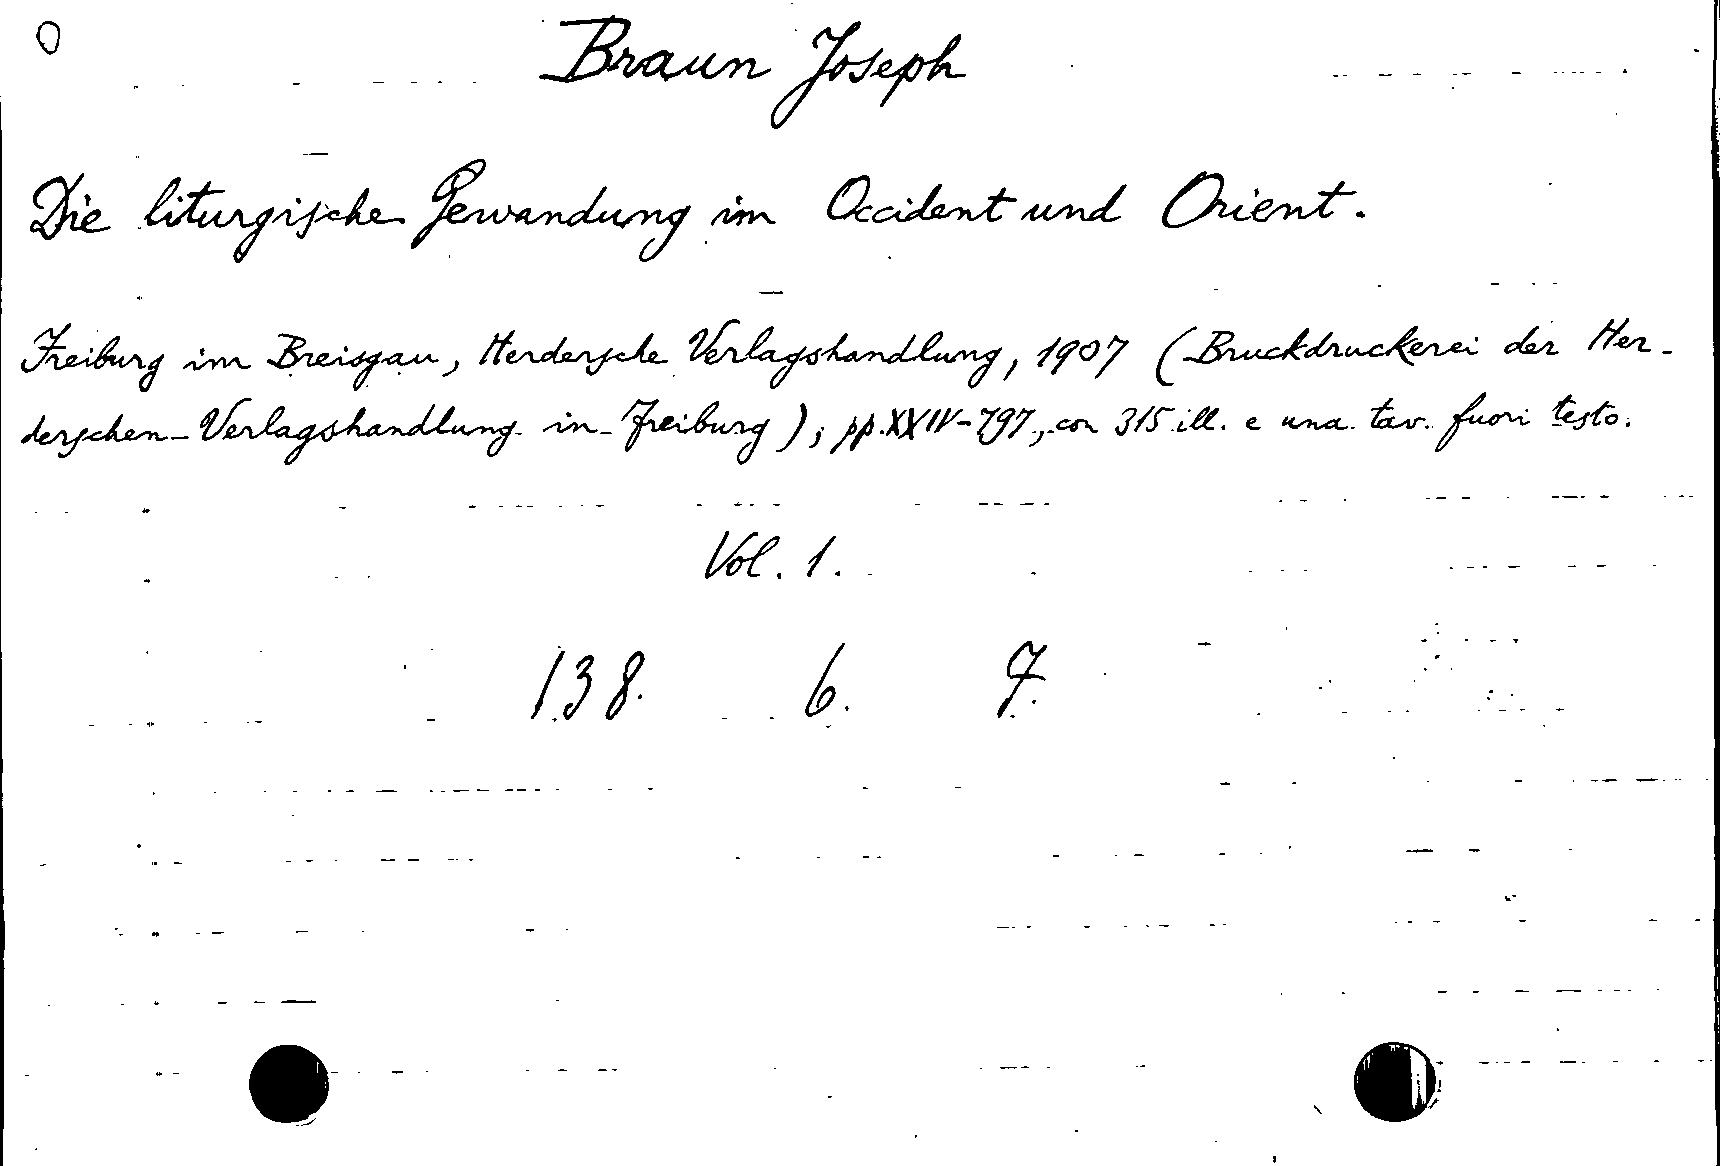 O
Braun Joseph
Die liturgische Gewandung im Occident und Orient.
Freiburg im Breisgau, Herdersche Verlagshandlung, 1907 (Bruckdruckerei der Her-
derschen Verlagshandlung in Freiburg); pp. XXIV-797, con 315 ill. e una tav. fuori testo.
Vol. 1.
138. 6. 7.